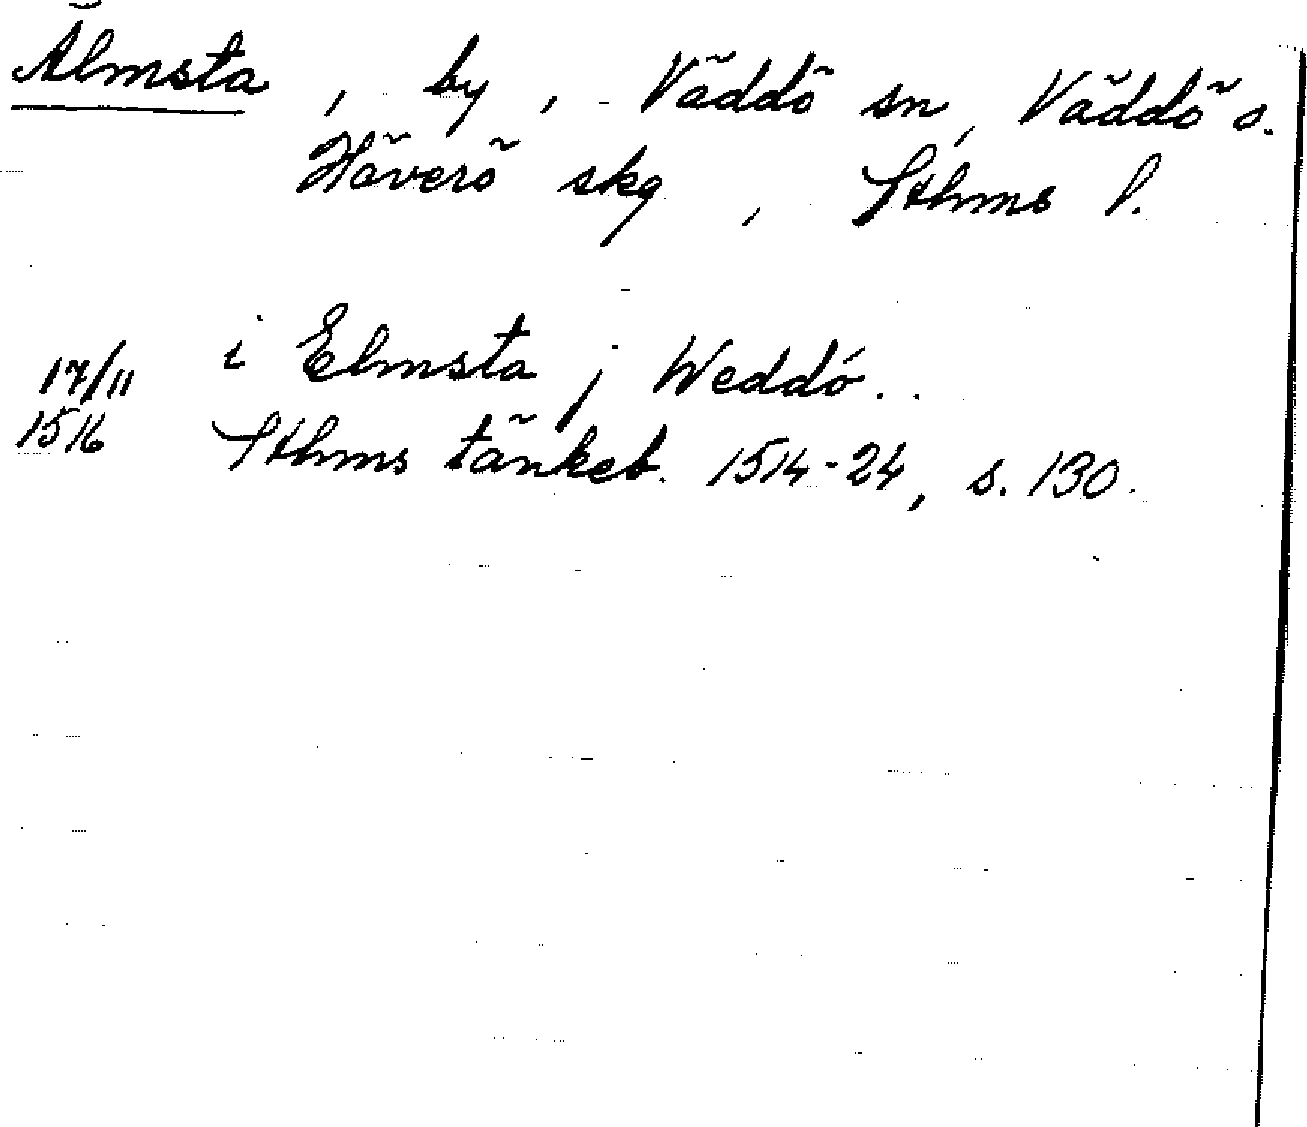 Älmsta, by, Väddö sn, Väddö o.
Häverö skg, Sthms l.
17/11 i Elmsta j Weddö..
1516 Sthms tänkeb. 1514-24, s. 130.